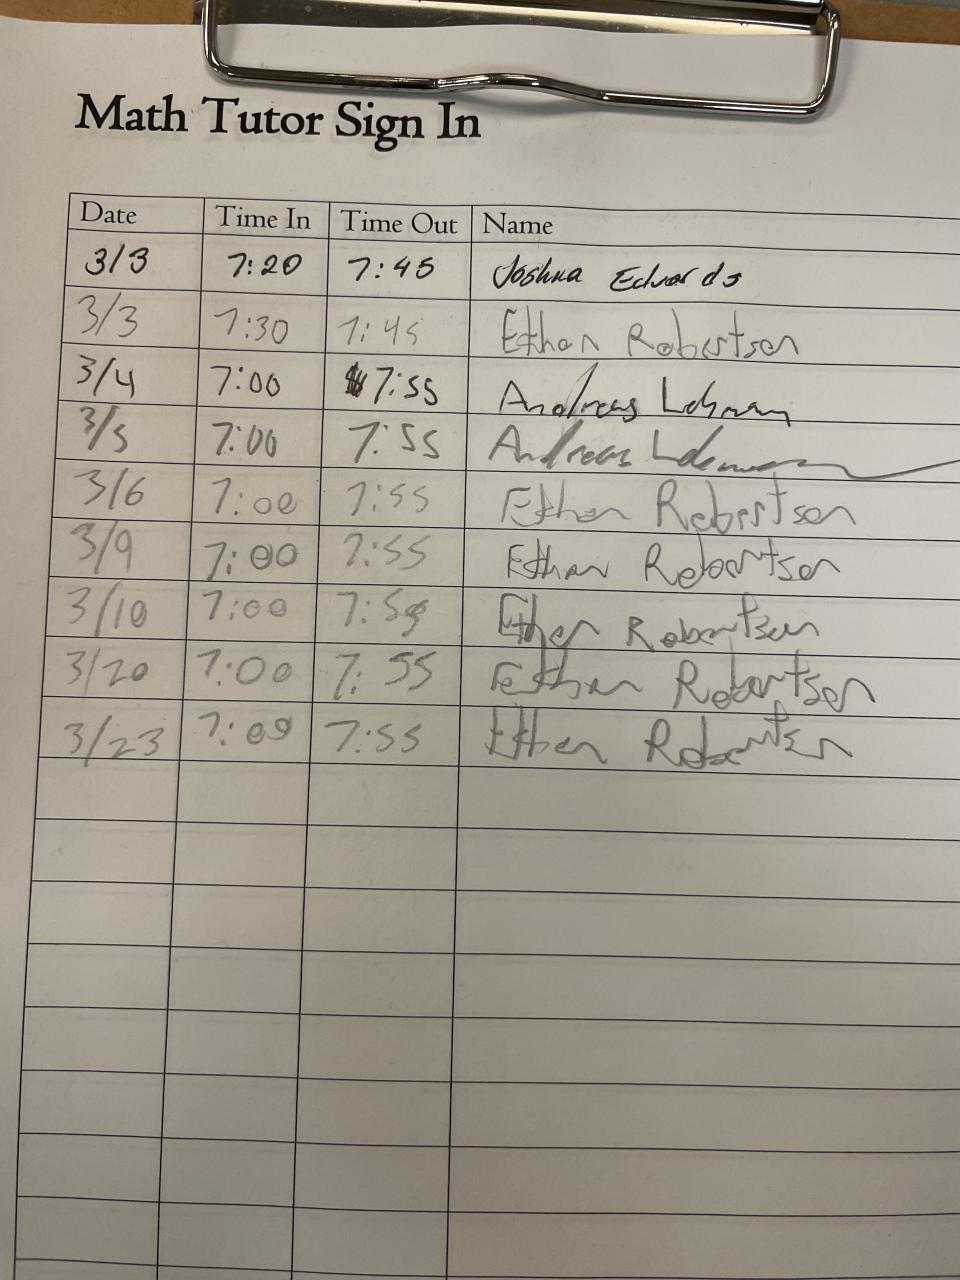 Math Tutor Sign In
Date Time In Time Out Name
3/3 7:20 7:45 Joshua Edwards
3/3 7:30 7:45 Ethan Robertson
3/4 7:00 7:55 Andreas
3/5 7:00 7:55 Andreas
3/6 7:00 7:55 Ethan Robertson
3/9 7:00 7:55 Ethan Robertson
3/10 7:00 7:55 Ethan Robertson
3/20 7:00 7:55 Ethan Robertson
3/23 7:55 Ethan Robertson